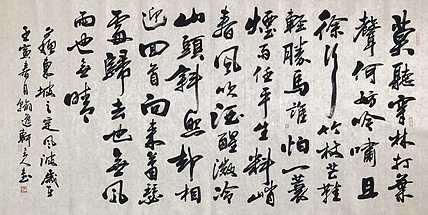 莫聽穿林打葉
聲何妨吟嘯且
徐行竹杖芒鞋
輕勝馬誰怕一蓑
煙雨任平生料峭
春風吹酒醒微冷
山頭斜照却相
迎回首向來蕭瑟
處歸去也無風
雨也無晴
蘇東坡之定風波歲在
壬寅春月